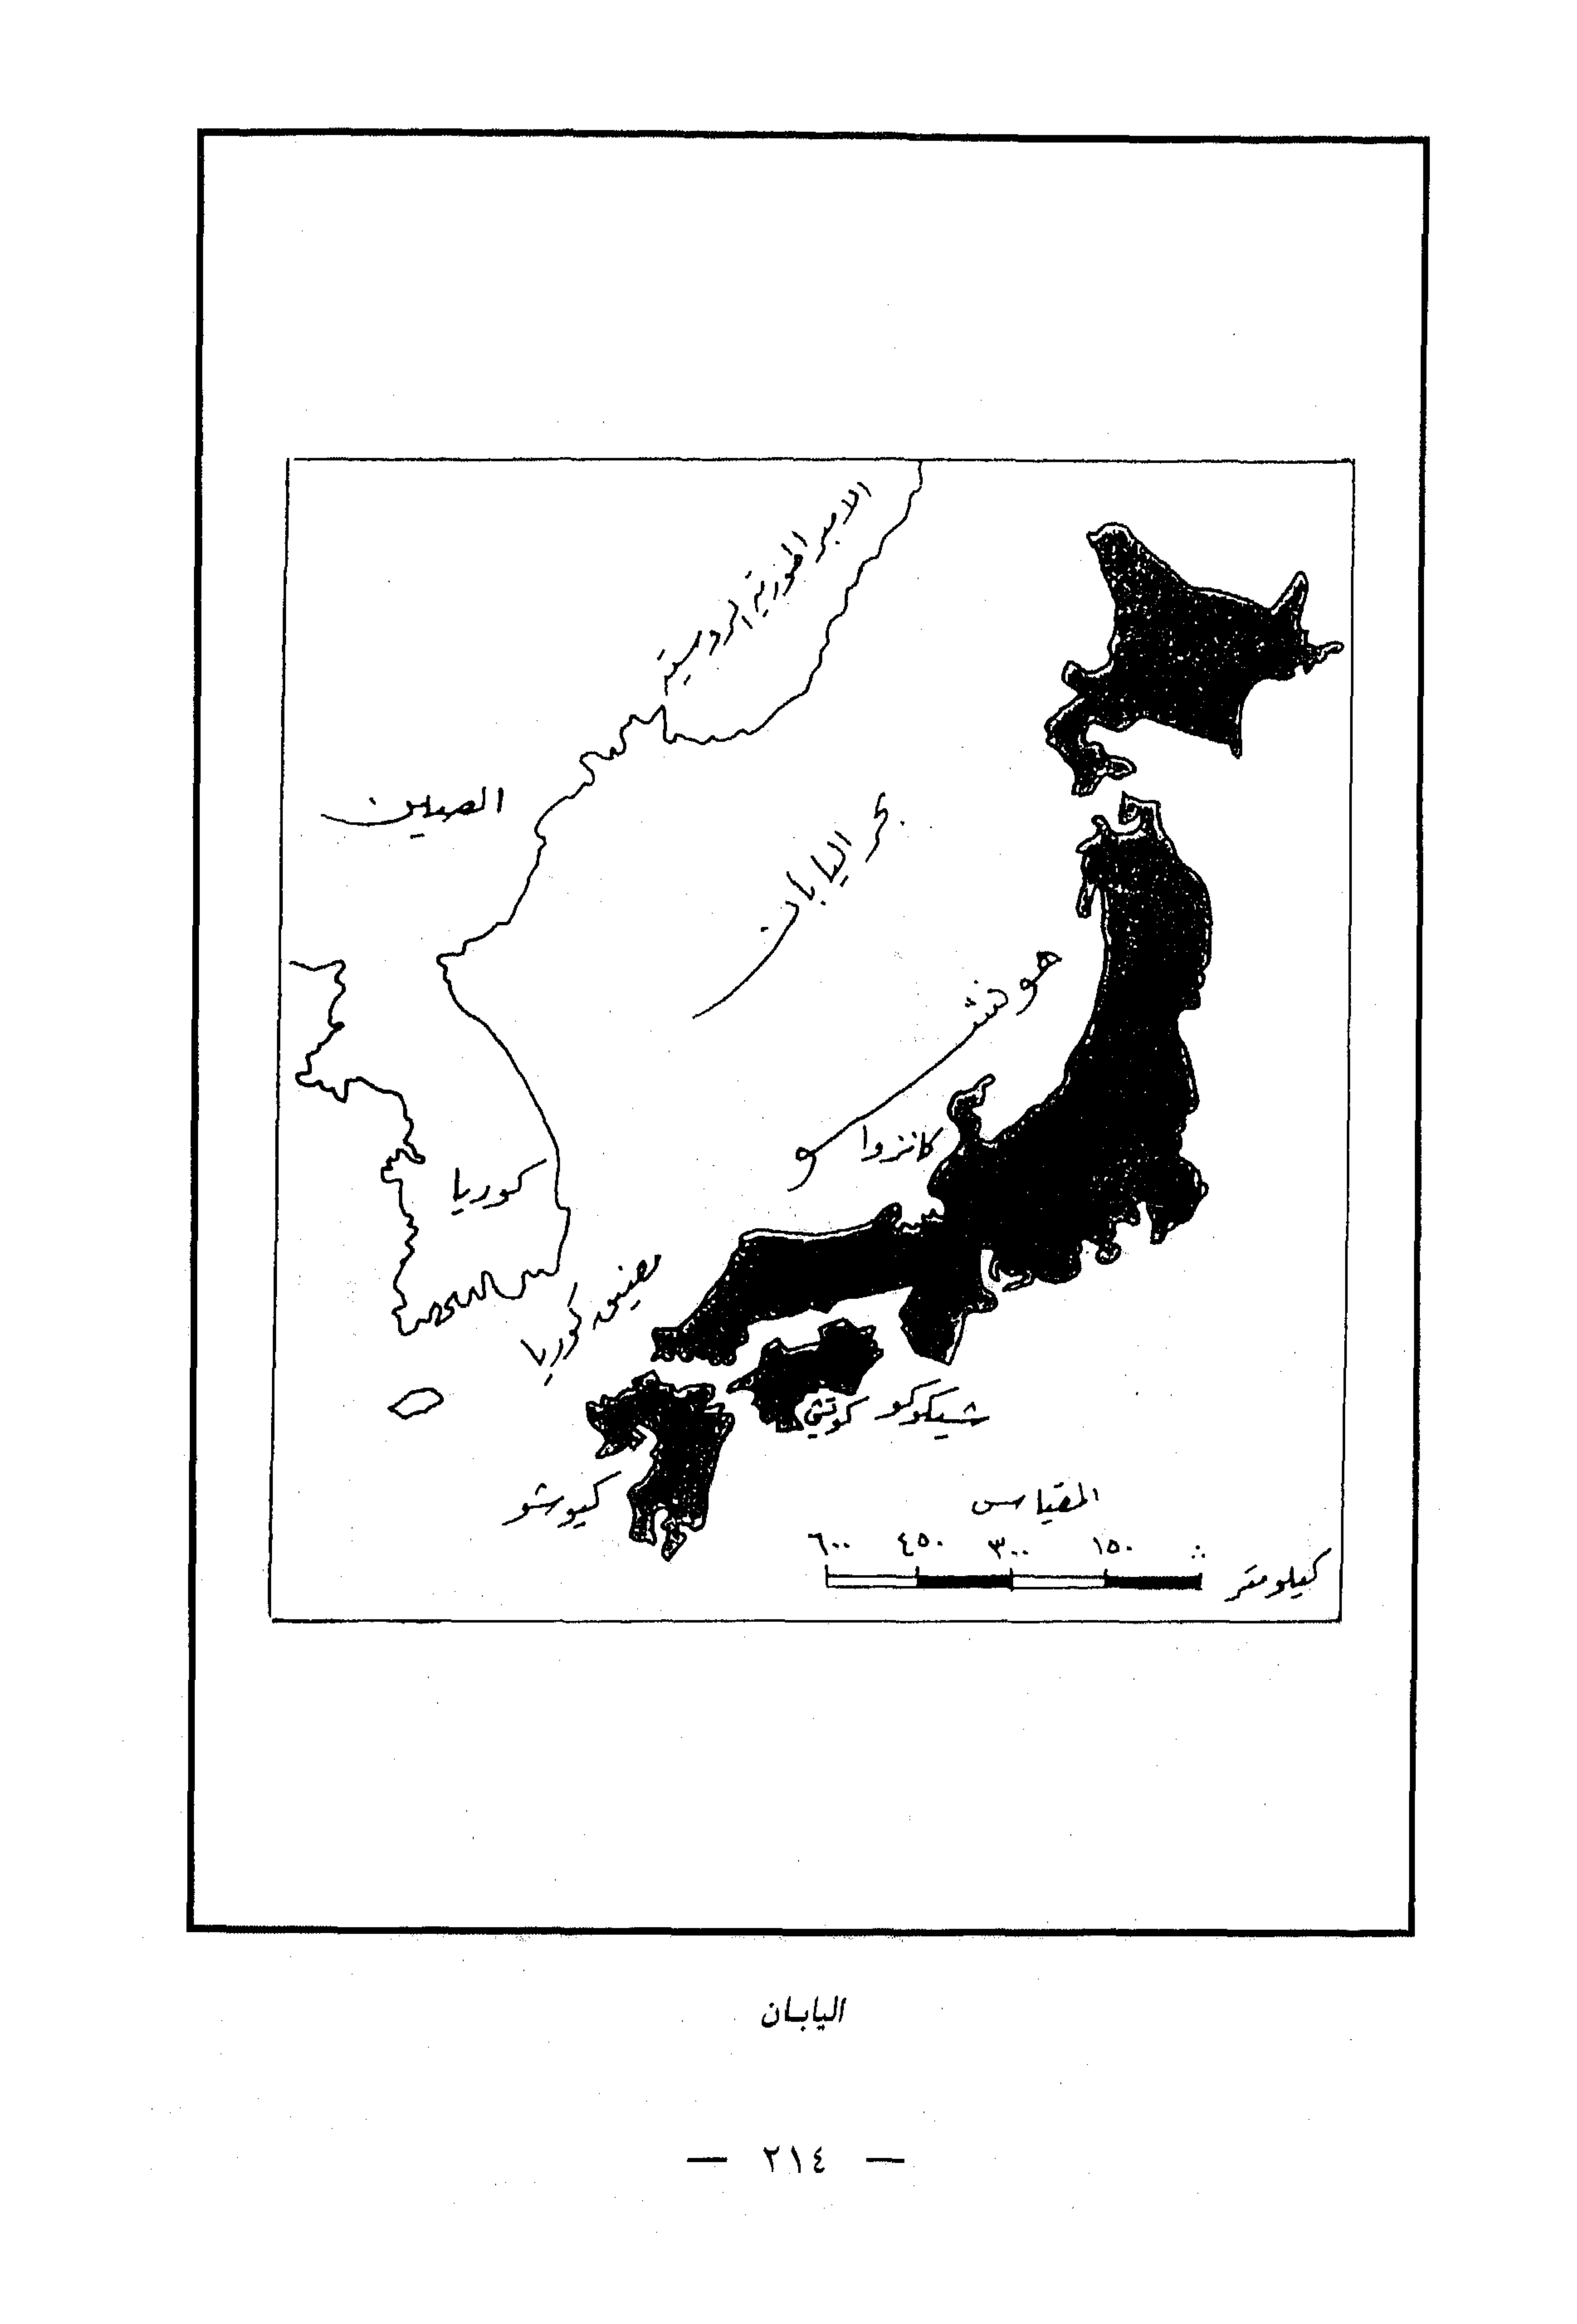 الامبراطورية الروسية
الصين
بحر اليابان
هونشو
كانزوا
كوريا
مضيق كوريا
شيكوكو
كوتشي
كيوشو
المقياس
٦٠٠ ٤٥٠ ٣٠٠ ١٥٠
كيلومتر
اليابان
— ٢١٤ —